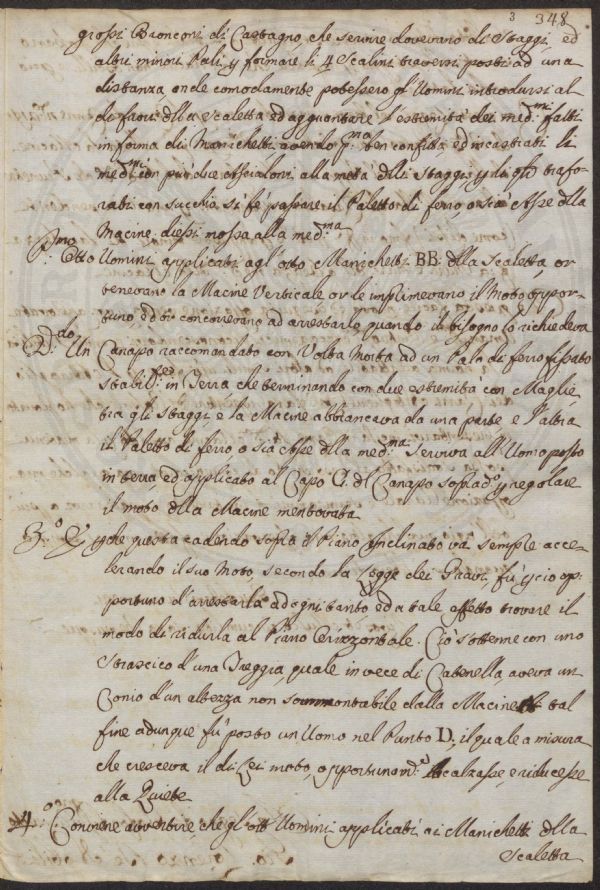 3 348
grossi Bronconi di Castagno, che servire dovevano di Staggi, ed
altri minori Pali, p formare li 4 Scalini traversi posti ad una
distanza onde comodamente potessero gl'Uomini introdursi al
di fuori dlla Scaletta ed agguantare l'estremità dei med.mi fatti
in forma di Manichetti avendo p.ma ben confitti, ed incastrati li
med.mi con più due alla metà dlli Staggi, p li qli trafo-
rati con succhio, si fè passare il Paletto di ferro, o sia Asse dlla
Macine, diessi mossa alla med.ma
P.mo Otto Uomini applicati agl'otto Manichetti BB. dlla Scaletta, or
tenevano la Macine Verticale or le imprimevano il Moto oppor-
tuno, ed or concorrevano ad arrestarle quando il bisogno lo richiedeva
2.do Un Canapo raccomandato con Volta Morta ad un Palo di ferro fissato
stabil. in Terra che terminando con due estremità con Maglie
tra gli Staggi, e la Macine abbrancava da una parte e l'altra
il Paletto di ferro, o sia Asse dlla med.ma Serviva all'Uomo posto
in terra, ed applicato al Capo C. dl Canapo sopradº p regolare
il moto dlla Macine mentovata
3.º E pche questa cadendo sopra il Piano Inclinato và sempre acce-
lerando il suo Moto, secondo la Legge dei Gravi, fù pciò op-
portuno d'arrestarla ad ogni tanto ed a tale effetto trovare il
modo di ridurla al Piano Orizzontale. Ciò s'ottenne con uno
Strascico d'una Treggia, quale in vece di Catenella, aveva un
Conio d'un altezza non sormontabile dalla Macine. A tal
fine adunque fù posto un Uomo nel Punto D, il quale a misura
che cresceva il di Lei moto, opportunam.e la calzasse, e riducesse
alla Quiete
4.º Conviene avvertire, che gl'otto Uomini applicati ai Manichetti dlla
Scaletta